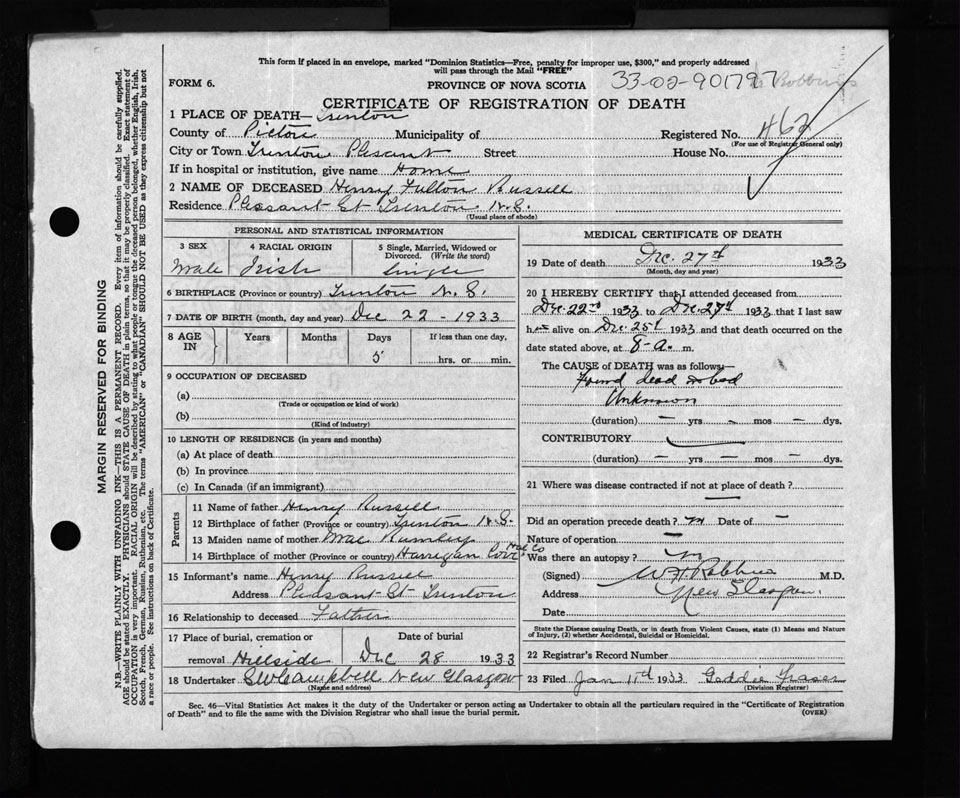 This form if placed in an envelope, marked "Dominion Statistics—Free, penalty for improper use, $300," and properly addressed
will pass through the Mail "FREE"
FORM 6.
PROVINCE OF NOVA SCOTIA
33-02-901797
CERTIFICATE OF REGISTRATION OF DEATH
1 PLACE OF DEATH— Trenton
County of Pictou Municipality of Registered No. 462
(For use of Registrar General only)
City or Town Trenton Plesant Street House No.
If in hospital or institution, give name Home
2 NAME OF DECEASED Henry Fulton Russell
Residence Plesant St Trenton N.S.
(Usual place of abode)
PERSONAL AND STATISTICAL INFORMATION
3 SEX 4 RACIAL ORIGIN 5 Single, Married, Widowed or Divorced. (Write the word)
Male Irish Single
6 BIRTHPLACE (Province or country) Trenton N.S.
7 DATE OF BIRTH (month, day and year) Dec 22 - 1933
8 AGE IN Years Months Days If less than one day,
5 hrs. or min.
9 OCCUPATION OF DECEASED
(a)
(Trade or occupation or kind of work)
(b)
(Kind of industry)
10 LENGTH OF RESIDENCE (in years and months)
(a) At place of death
(b) In province
(c) In Canada (if an immigrant)
Parents
11 Name of father Henry Russell
12 Birthplace of father (Province or country) Trenton N.S.
13 Maiden name of mother Mae Rumley
14 Birthplace of mother (Province or country) Harrigan Cove Hal Co
15 Informant's name Henry Russell
Address Pleasant St Trenton
16 Relationship to deceased Father
17 Place of burial, cremation or removal Hillside Date of burial Dec 28 1933
18 Undertaker Campbell New Glasgow
(Name and address)
MEDICAL CERTIFICATE OF DEATH
19 Date of death Dec. 27th 1933
(Month, day and year)
20 I HEREBY CERTIFY that I attended deceased from
Dec 22nd 1933 to Dec 27th 1933 that I last saw
h alive on Dec 25th 1933 and that death occurred on the
date stated above, at 8-a. m.
The CAUSE of DEATH was as follows:—
Found dead in bed
Unknown
(duration) — yrs — mos — dys.
CONTRIBUTORY
(duration) — yrs — mos — dys.
21 Where was disease contracted if not at place of death?
Did an operation precede death? no Date of —
Nature of operation —
Was there an autopsy? no
(Signed) M.D.
Address New Glasgow.
Date
State the Disease causing Death, or in death from Violent Causes, state (1) Means and Nature
of Injury, (2) whether Accidental, Suicidal or Homicidal.
22 Registrar's Record Number
23 Filed Jan 11th 1933 Fraser
(Division Registrar)
Sec. 46—Vital Statistics Act makes it the duty of the Undertaker or person acting as Undertaker to obtain all the particulars required in the "Certificate of Registration
of Death" and to file the same with the Division Registrar who shall issue the burial permit. (OVER)
MARGIN RESERVED FOR BINDING
N.B.—WRITE PLAINLY WITH UNFADING INK—THIS IS A PERMANENT RECORD. Every item of information should be carefully supplied.
AGE should be stated EXACTLY. PHYSICIANS should STATE CAUSE OF DEATH in plain terms, so that it may be properly classified. Exact statement of
OCCUPATION is very important. RACIAL ORIGIN will be described by stating to what people or tongue the deceased person belonged, whether English, Irish,
Scotch, French, German, Russian, Ruthenian, etc. The terms "AMERICAN" or "CANADIAN" SHOULD NOT BE USED as they express citizenship but not
a race or people. See instructions on back of Certificate.